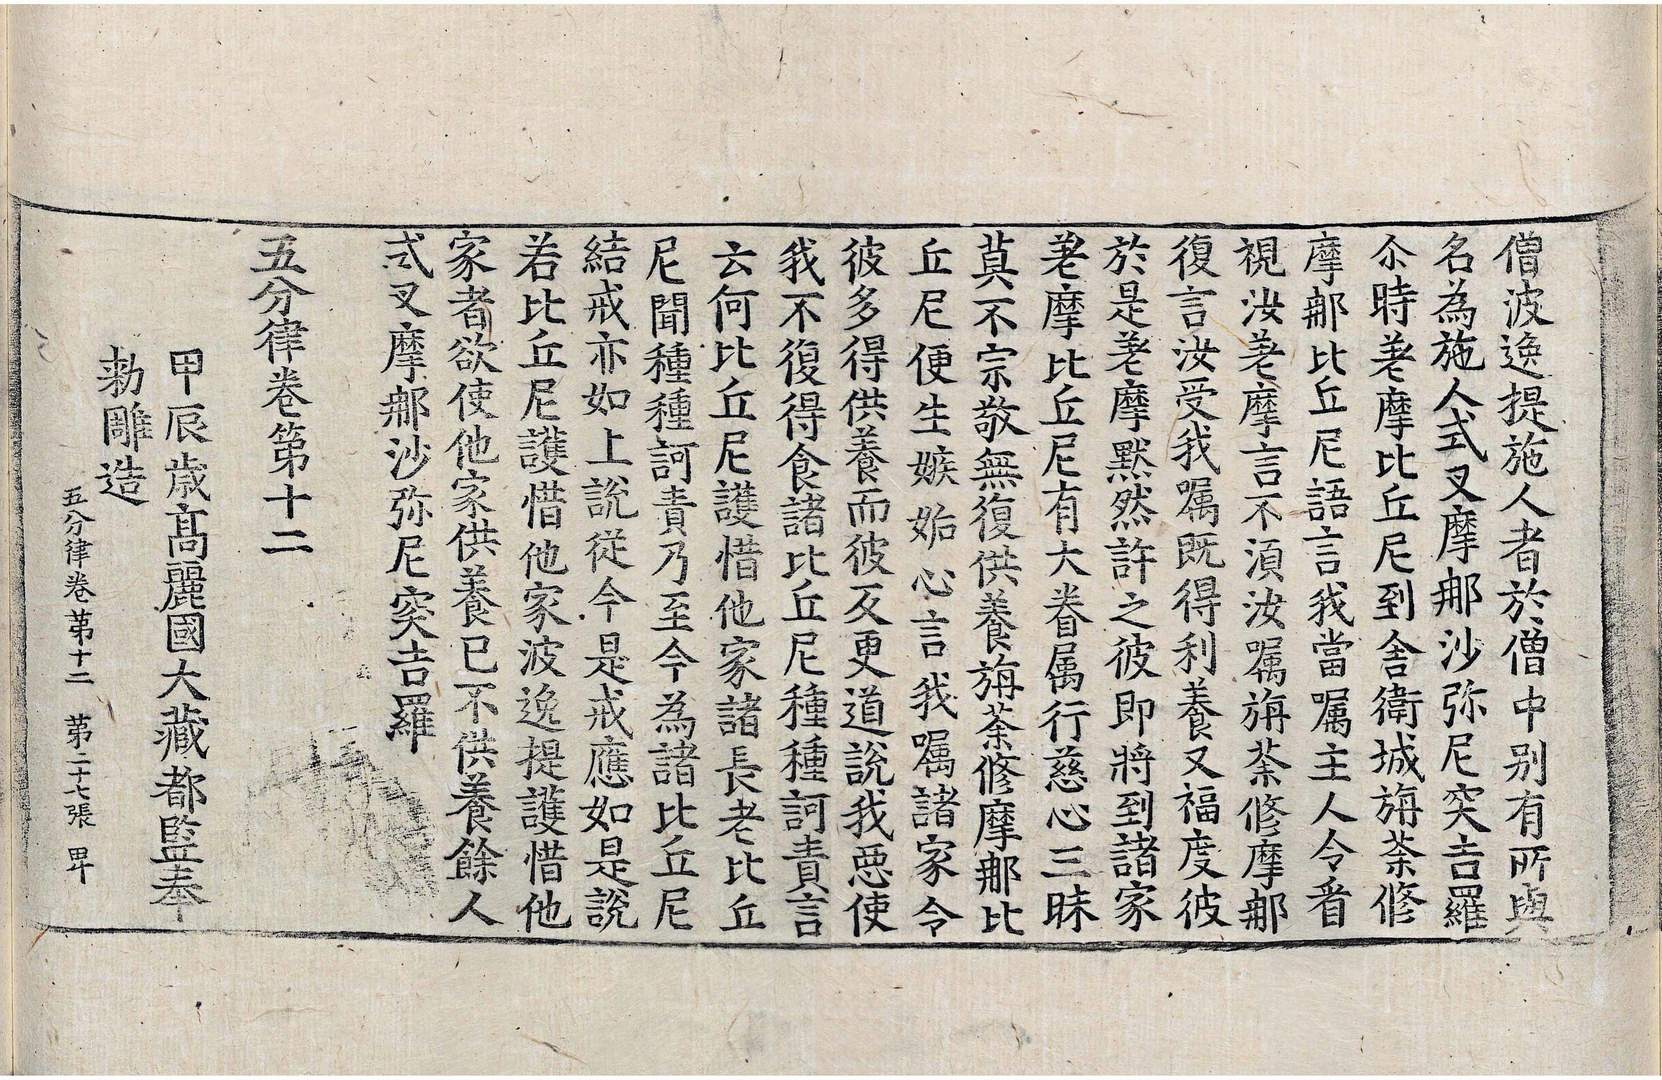 僧波逸提施人者於僧中別有所與
名為施人式叉摩那沙弥尼突吉羅
尒時差摩比丘尼到舍衛城旃荼修
摩那比丘尼語言我當囑主人令看
視汝差摩言不須汝囑旃荼修摩那
復言汝受我囑既得利養又福度彼
於是差摩默然許之彼即將到諸家
差摩比丘尼有大眷属行慈心三昧
莫不宗敬無復供養旃荼修摩那比
丘尼便生嫉妬心言我囑諸家令
彼多得供養而彼反更道說我惡使
我不復得食諸比丘尼種種訶責言
云何比丘尼護惜他家諸長老比丘
尼聞種種訶責乃至今為諸比丘尼
結戒亦如上說從今是戒應如是說
若比丘尼護惜他家波逸提護惜他
家者欲使他家供養已不供養餘人
式叉摩那沙弥尼突吉羅
五分律卷第十二
甲辰歳髙麗國大藏都監奉
勑雕造
五分律卷第十二 第二十七張 毕